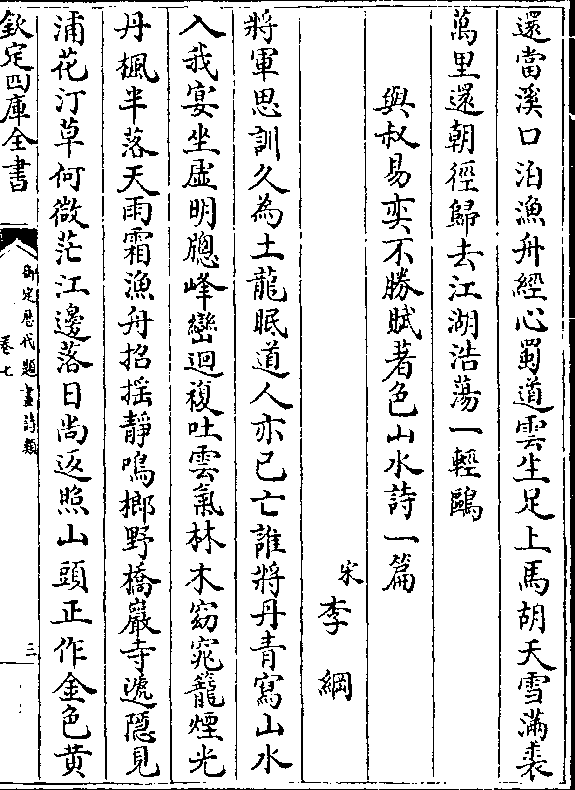 還當溪口泊漁舟經心蜀道雲生足上馬胡天雪滿裘
萬里還朝徑歸去江湖浩蕩一輕鷗
與叔易奕不勝賦著色山水詩一篇
宋李綱
將軍思訓久為土龍眠道人亦已亡誰將丹青寫山水
入我宴坐虛明牕峰巒迴複吐雲氣林木窈窕籠煙光
丹楓半落天雨霜漁舟招摇靜鳴榔野橋巖寺遞隱見
浦花汀草何微茫江邊落日尚返照山頭正作金色黄
欽定四庫全書
御定歴代題畫詩類
卷七
三